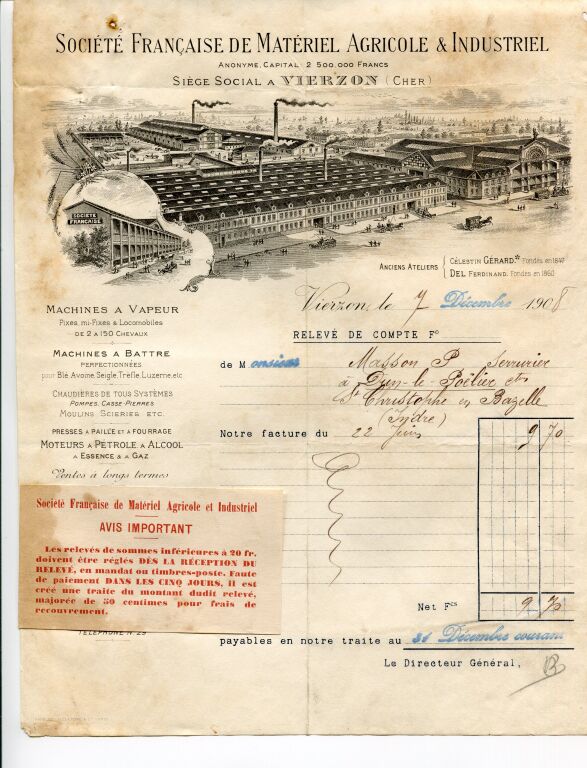 SOCIÉTÉ FRANÇAISE DE MATÉRIEL AGRICOLE & INDUSTRIEL
ANONYME, CAPITAL 2 500.000 FRANCS
SIÈGE SOCIAL A VIERZON (CHER)
SOCIÉTÉ
FRANÇAISE
ANCIENS ATELIERS
CÉLESTIN GÉRARD.* Fondés en 1847
DEL FERDINAND. Fondés en 1860
Vierzon, le 7 Décembre 1908
MACHINES A VAPEUR
FIXES, MI-FIXES & LOCOMOBILES
DE 2 A 150 CHEVAUX
MACHINES A BATTRE
PERFECTIONNÉES
pour Blé, Avoine, Seigle, Trèfle, Luzerne, etc
CHAUDIÈRES DE TOUS SYSTÈMES
POMPES, CASSE-PIERRES
MOULINS SCIERIES ETC.
PRESSES A PAILLE ET A FOURRAGE
MOTEURS A PÉTROLE A ALCOOL
A ESSENCE & A GAZ
Ventes à longs termes
RELEVÉ DE COMPTE Fº
de Monsieur Masson P. Serrurier
à Dun-le-Poëlier et
St Christophe en Bazelle
(Indre)
Notre facture du 22 Juin 9 70
Société Française de Matériel Agricole et Industriel
AVIS IMPORTANT
Les relevés de sommes inférieures à 20 fr.
doivent être réglés DÈS LA RÉCEPTION DU
RELEVÉ, en mandat ou timbres-poste. Faute
de paiement DANS LES CINQ JOURS, il est
créé une traite du montant dudit relevé,
majorée de 50 centimes pour frais de
recouvrement.
TÉLÉPHONE N. 29
Net Fcs 9 70
payables en notre traite au 31 Décembre courant
Le Directeur Général,